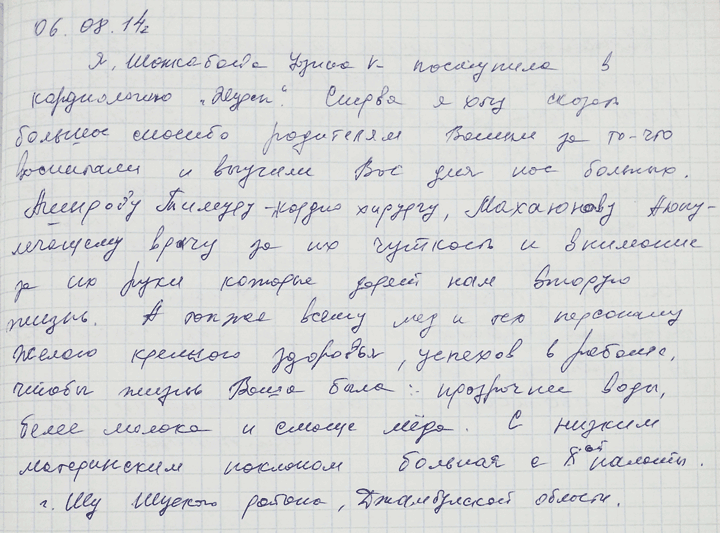 06.08.14г
Я, Шожабаева К поступила в
кардиологию „Жүрек“. Сперва я хочу сказать
большое спасибо родителям Вашим за то-что
воспитали и выучили Вас для нас больных.
Аширову Тимуру-кардио хирургу, Махаюнову -
лечащему врачу за их чуткость и внимание
за их руки которые дарят нам вторую
жизнь. А также всему мед и тех персоналу
желаю крепкого здоровья, успехов в работе,
чтобы жизнь Ваша была: прозрачнее воды,
белее молока и слаще мёда. С низким
материнским поклоном больная с палаты.
г. Шу Шуского района, Джамбулской области.